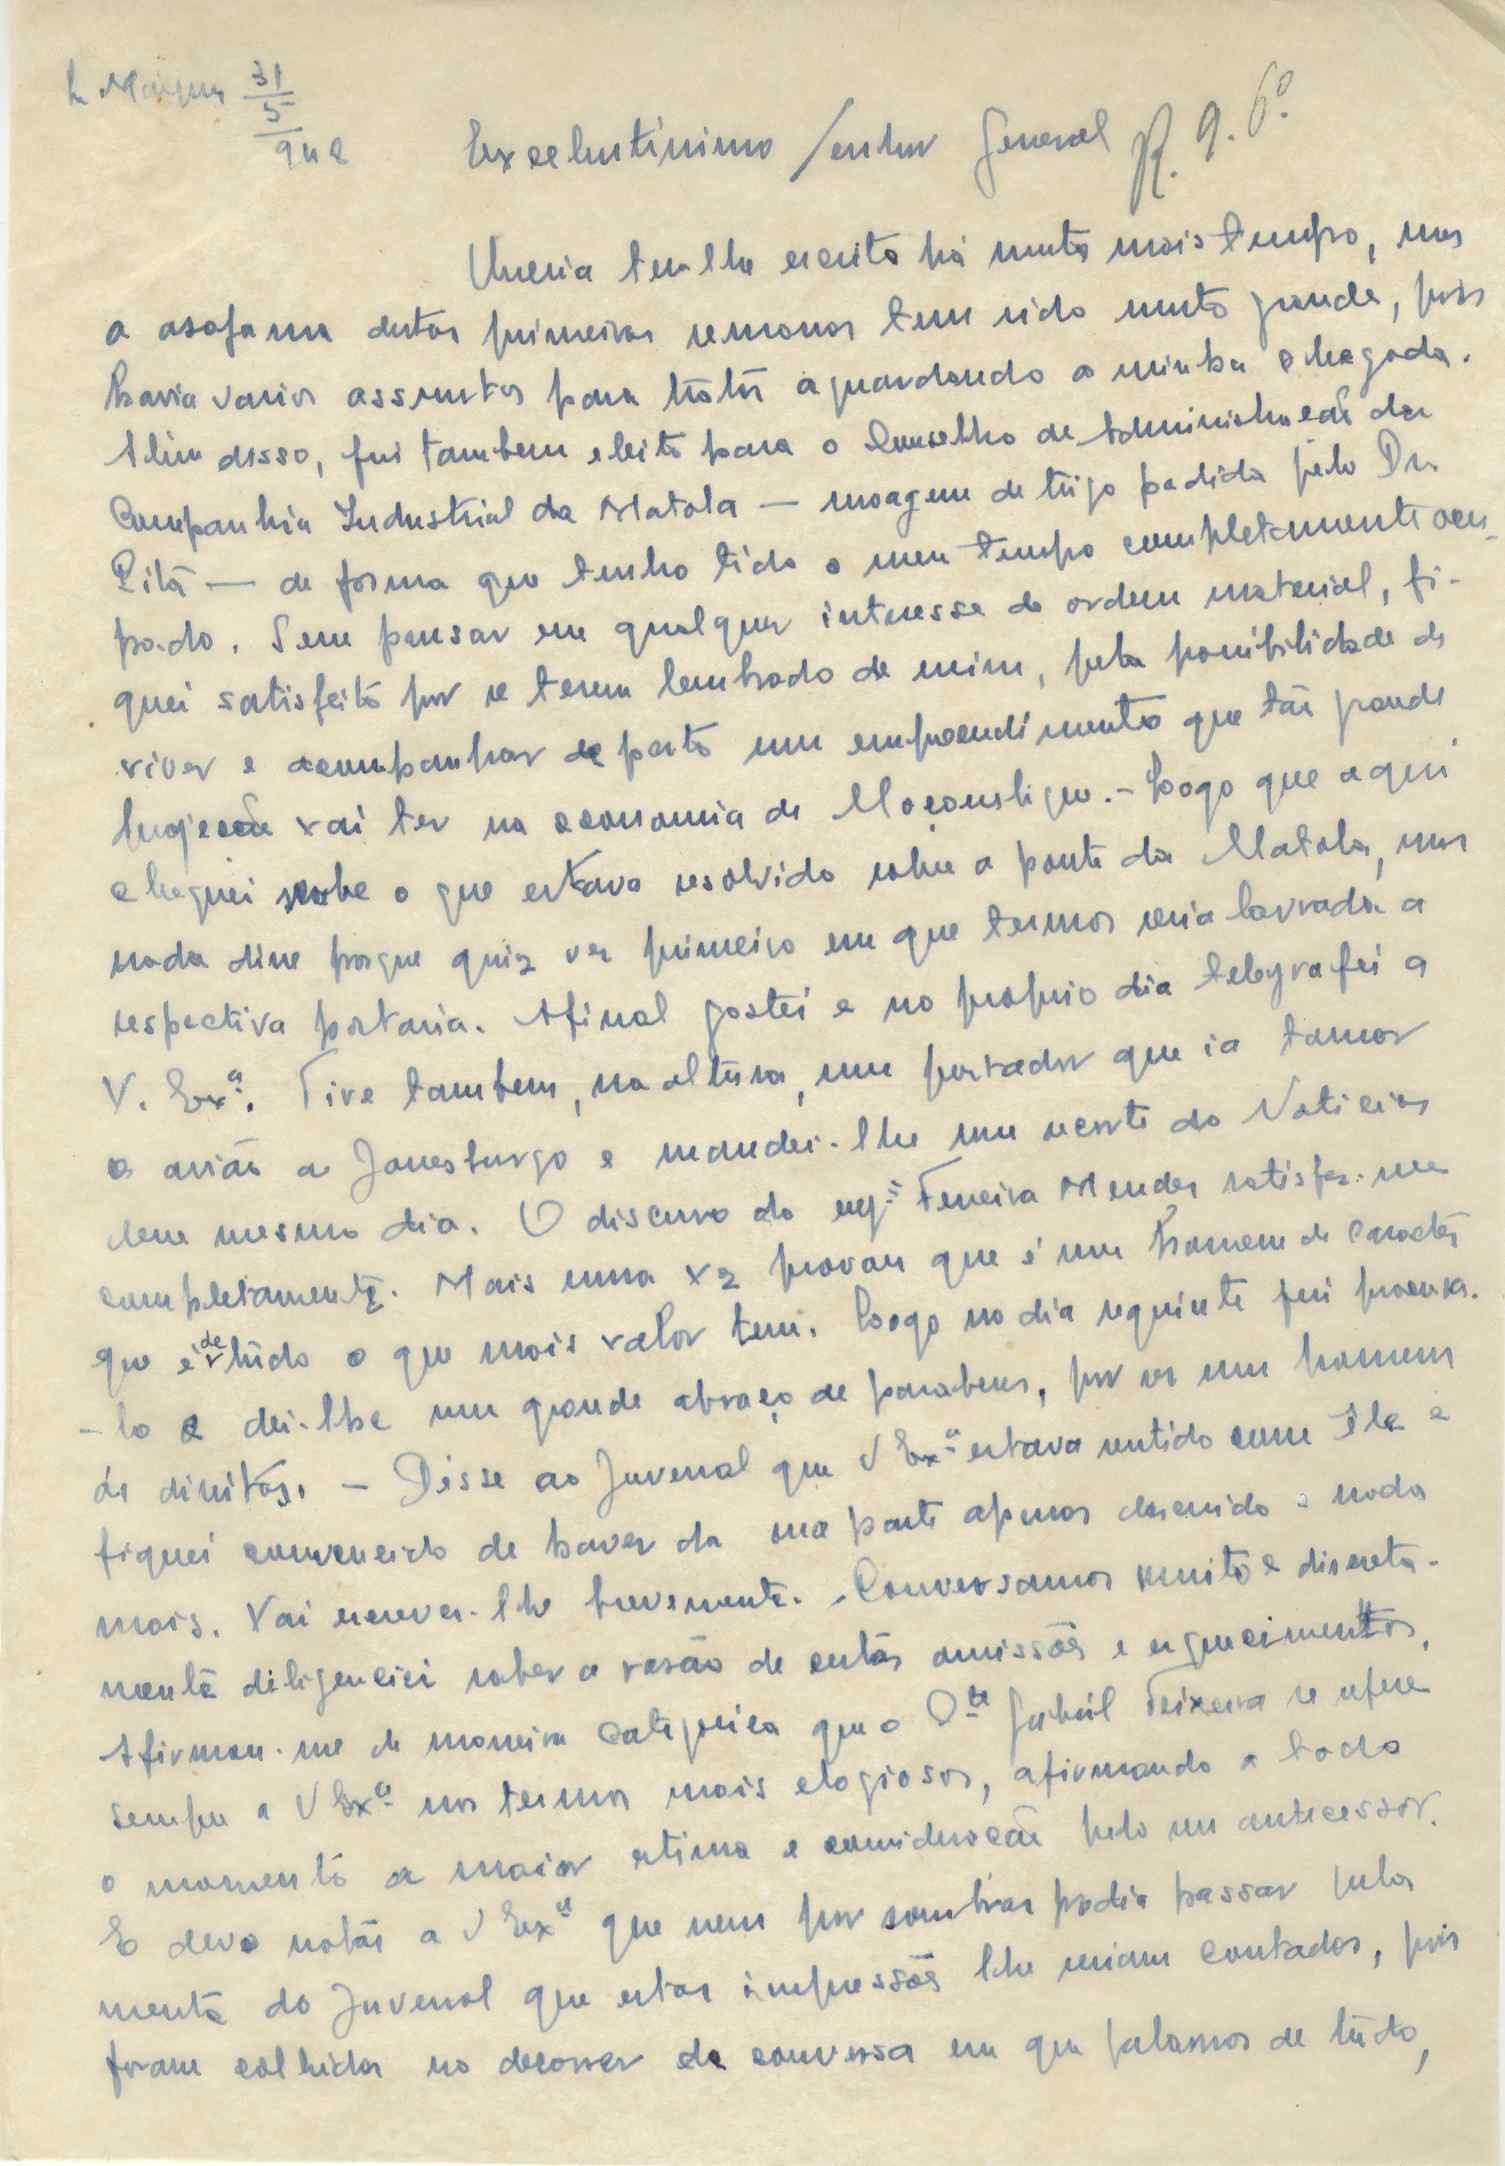 L. Marques 31/5/948
Excelentissimo Senhor General R. 9. 6º
Queria ter-lhe escrito há muito mais tempo, mas
a asafama destas primeiras semanas tem sido muito grande, pois
havia varios assuntos para tratar aguardando a minha chegada.
Alem disso, fui tambem eleito para o Conselho de Administração da
Companhia Industrial da Matola — moagem de trigo pedida pelo Dr.
Pitá — de forma que tenho tido o meu tempo completamente ocu-
pado. Sem pensar em qualquer interesse de ordem material, fi-
quei satisfeito por se terem lembrado de mim, pela possibilidade de
viver e acompanhar de perto um empreendimento que tão grande
projecção vai ter na economia de Moçambique. - Logo que aqui
cheguei soube o que estava resolvido sobre a ponte da Matola, mas
nada disse porque quiz ver primeiro em que termos seria lavrada a
respectiva portaria. Afinal gostei e no proprio dia telegrafei a
V. Exª. Tive tambem, na altura, um portador que ia tomar
o avião a Joanesburgo e mandei-lhe um recorte do Noticias
desse mesmo dia. O discurso do engº Ferreira Mendes satisfez-me
completamente. Mais uma vez provou que é um homem de caracter
que é de tudo o que mais valor tem. Logo no dia seguinte fui procura-
-lo e dei-lhe um grande abraço de parabens, por ser um homem
ás direitas. - Disse ao Juvenal que V Exª estava sentido com êle e
fiquei convencido de haver da sua parte apenas descuido e nada
mais. Vai escrever-lhe brevemente. - Conversamos muito e discreta-
mente diligenciei saber a rasão de certas omissões e esquecimentos.
Afirmou-me de maneira categorica que o Cte Gabriel Teixeira se refere
sempre a V Exª nos termos mais elogiosos, afirmando a todo
o momento a maior estima e consideração pelo seu antecessor.
E devo notar a V Exª que nem por sombras podia passar pela
mente do Juvenal que estas impressões lhe seriam contadas, pois
foram colhidas no decorrer da conversa em que falamos de tudo,